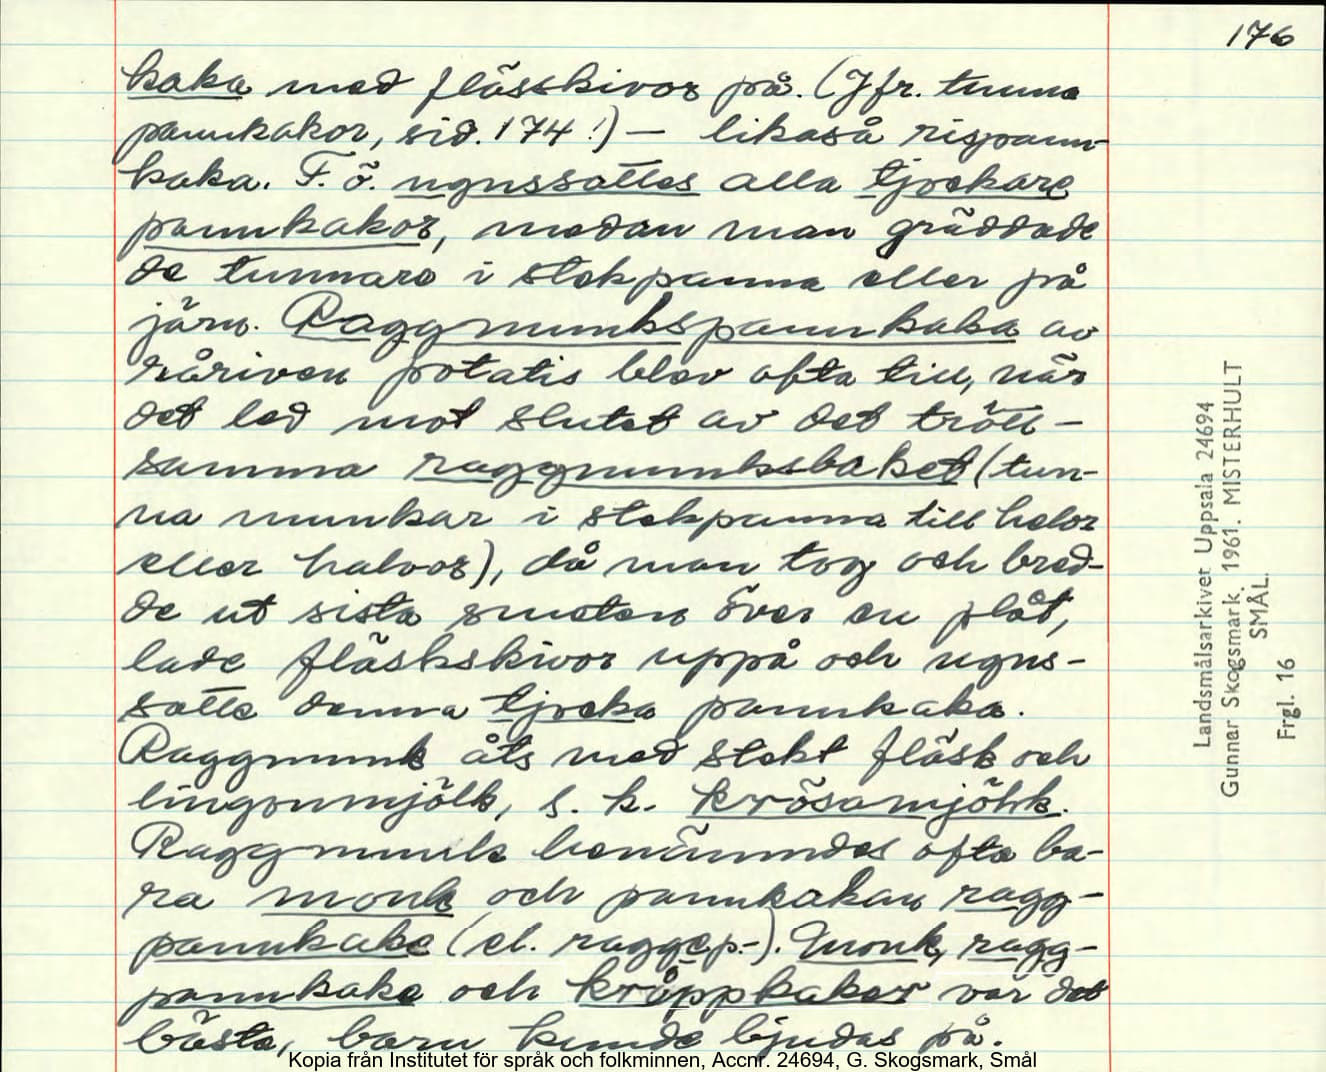 176
kaka med flässkivor på. (Jfr. tunna
pannkakor, sid. 174!) — likaså rispann-
kaka. F. ö. ugnssattes alla tjockare
pannkakor, medan man gräddade
de tunnare i stekpanna eller på
järn. Raggmunkspannkaka av
råriven potatis blev ofta till, när
det led mot slutet av det tröt-
samma raggmunksbaket (tun-
na munkar i stekpanna till helor
eller halvor), då man tog och bred-
de ut sista smeten över en plåt,
lade fläskskivor uppå och ugns-
satte denna tjocka pannkaka.
Raggmunk åts med stekt fläsk och
lingonmjölk, s. k. krösamjöhk.
Raggmunk benämndes ofta ba-
ra monk och pannkakan ragg-
pannkake (el. raggep-). Monk, ragg-
pannkake och kröppkaker var det
bästa, barn kunde bjudas på.
Landsmålsarkivet Uppsala 24694
Gunnar Skogsmark. 1961. MISTERHULT
SMÅL.
Frgl. 16
Kopia från Institutet för språk och folkminnen, Accnr. 24694, G. Skogsmark, Smål